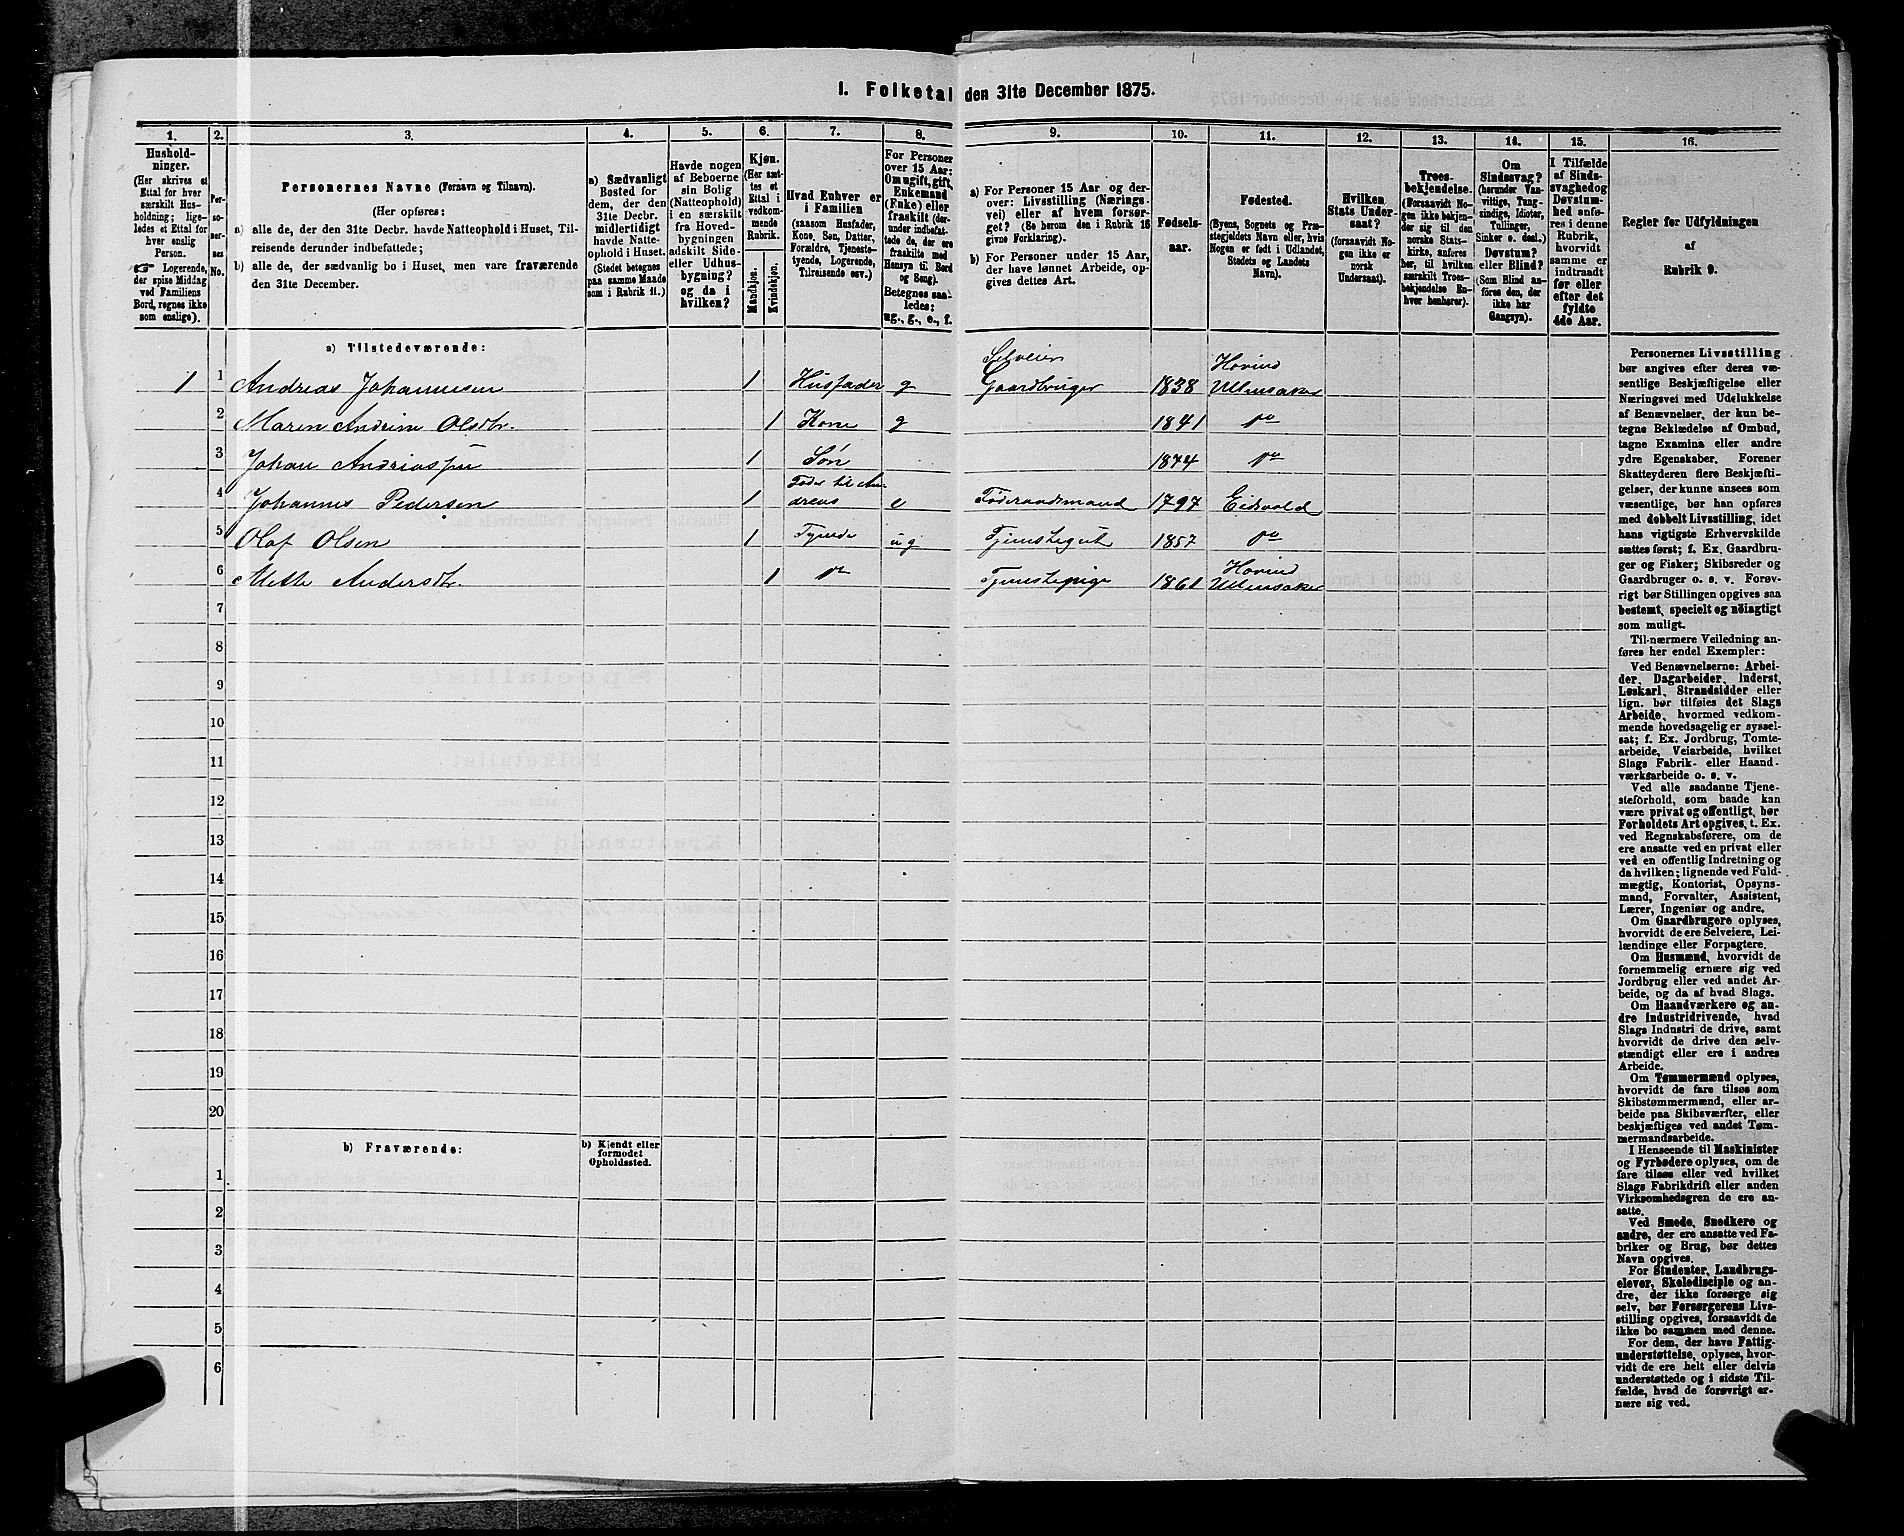 1. Folketal den 31te December 1875.
1. 2. 3. 4. 5. 6. 7. 8. 9. 10. 11. 12. 13. 14. 15. 16.
Hushold-
ninger.
(Her skrives et
Ettal for hver
særskilt Hus-
holdning; lige-
ledes et Ettal for
hver enslig
Person.
☞ Logerende,
der spise Middag
ved Familiens
Bord, regnes ikke
som enslige).
Per-
so-
ner-
nes
No.
Personernes Navne (Fornavn og Tilnavn).
(Her opføres:
a) alle de, der den 31te Decbr. havde Natteophold i Huset, Til-
reisende derunder indbefattede;
b) alle de, der sædvanlig bo i Huset, men vare fraværende
den 31te December.
a) Sædvanligt
Bosted for
dem, der den
31te Decbr.
midlertidigt
havde Natte-
ophold i Huset.
(Stedet betegnes
paa samme Maade
som i Rubrik 11.)
Havde nogen
af Beboerne
sin Bolig
(Natteophold)
i en særskilt
fra Hoved-
bygningen
adskilt Side-
eller Udhus-
bygning?
og da i
hvilken?
Kjøn.
(Her sæt-
tes et
Ettal i
vedkom-
mende
Rubrik.
Mandkjøn.
Kvindekjøn.
Hvad Enhver er
i Familien
(saasom Husfader,
Kone, Søn, Datter,
Forældre, Tjeneste-
tyende, Logerende,
Tilreisende osv.)
For Personer
over 15 Aar:
Om ugift, gift,
Enkemand
(Enke) eller
fraskilt (der-
under indbefat-
tede de, der ere
fraskilte med
Hensyn til Bord
og Seng).
Betegnes saa-
ledes:
ug., g., e., f.
a) For Personer 15 Aar og der-
over: Livsstilling (Nærings-
vei) eller af hvem forsør-
get? (Se herom den i Rubrik 16
givne Forklaring).
b) For Personer under 15 Aar,
der have lønnet Arbeide, op-
gives dettes Art.
Fødsels-
aar.
Fødested.
(Byens, Sognets og Præ-
stegjeldets Navn eller, hvis
Nogen er født i Udlandet,
Stedets og Landets
Navn).
Hvilken
Stats Under-
saat?
(forsaavidt No-
gen ikke er
norsk
Undersaat).
Troes-
bekjendelse.
(Forsaavidt No-
gen ikke bekjen-
der sig til den
norske Stats-
kirke, anføres
her, til hvilken
særskilt Troes-
bekjendelse En-
hver henhører).
Om
Sindssvag?
(herunder Van-
vittige, Tung-
sindige, Idioter,
Tullinger,
Sinker o. desl.)
Døvstum?
eller Blind?
(Som Blind an-
føres den, der
ikke har
Gangsyn).
I Tilfælde
af Sinds-
svaghed og
Døvstum-
hed anfø-
res i denne
Rubrik,
hvorvidt
samme er
indtraadt
før eller
efter det
fyldte
4de Aar.
Regler for Udfyldningen
af
Rubrik 9.
a) Tilstedeværende:
1 1 Andreas Johannesen 1 Husfader g Selveier Gaardbruger 1838 Hovind Ullensaker
2 Maren Andrine Olsdtr. 1 Kone g 1841 do
3 Johan Andreassen 1 Søn 1874 do
4 Johannes Pedersen 1 Fader til An-
dreas e Føderaadsmand 1797 Eidsvold
5 Olaf Olsen 1 Tyende ug Tjenstegut 1857 do
6 Mette Andersdtr. 1 do Tjenstepige 1861 Hovind Ullensaker
7
8
9
10
11
12
13
14
15
16
17
18
19
20
b) Fraværende:
b) Kjendt eller
formodet
Opholdssted.
1
2
3
4
5
6
Personernes Livsstilling
bør angives efter deres væ-
sentlige Beskjæftigelse eller
Næringsvei med Udelukkelse
af Benævnelser, der kun be-
tegne Beklædelse af Ombud,
tagne Examina eller andre
ydre Egenskaber. Forener
Skatteyderen flere Beskjæfti-
gelser, der kunne ansees som
væsentlige, bør han opføres
med dobbelt Livsstilling, idet
hans vigtigste Erhvervskilde
sættes først; f. Ex. Gaardbru-
ger og Fisker; Skibsreder og
Gaardbruger o. s. v. Forøv-
rigt bør Stillingen opgives saa
bestemt, specielt og nøiagtigt
som muligt.
Til nærmere Veiledning an-
føres her endel Exempler:
Ved Benævnelserne: Arbei-
der, Dagarbeider, Inderst,
Løskarl, Strandsidder eller
lign. bør tilføies det Slags
Arbeide, hvormed vedkom-
mende hovedsagelig er syssel-
sat; f. Ex. Jordbrug, Tomte-
arbeide, Veiarbeide, hvilket
Slags Fabrik- eller Haand-
værksarbeide o. s. v.
Ved alle saadanne Tjene-
steforhold, som baade kan
være privat og offentligt, bør
Forholdets Art opgives, t. Ex.
ved Regnskabsførere, om de
ere ansatte ved en privat eller
ved en offentlig Indretning og
da hvilken; lignende ved Fuld-
mægtig, Kontorist, Opsyns-
mand, Forvalter, Assistent,
Lærer, Ingeniør og andre.
Om Gaardbrugere oplyses,
hvorvidt de ere Selveiere, Lei-
lændinge eller Forpagtere.
Om Husmænd, hvorvidt de
fornemmelig ernære sig ved
Jordbrug eller ved andet Ar-
beide, og da af hvad Slags.
Om Haandværkere og an-
dre Industridrivende, hvad
Slags Industri de drive, samt
hvorvidt de drive den selv-
stændigt eller ere i andres
Arbeide.
Om Tømmermænd oplyses,
hvorvidt de fare tilsøs som
Skibstømmermænd, eller ar-
beide paa Skibsværfter, eller
beskjæftiges ved andet Tøm-
mermandsarbeide.
I Henseende til Maskinister
og Fyrbødere oplyses, om de
fare tilsøs eller ved hvilket
Slags Fabrikdrift eller anden
Virksomhedsgren de ere an-
satte.
Ved Smede, Snedkere og
andre, der ere ansatte ved Fa-
briker og Brug, bør dettes
Navn opgives.
For Studenter, Landbrugs-
elever, Skoledisciple og an-
dre, der ikke forsørge sig
selv, bør Forsørgerens Livs-
stilling opgives, forsaavidt de
ikke bo sammen med denne.
For dem, der have Fattig-
understøttelse, oplyses, hvor-
vidt de ere helt eller delvis
understøttede og i sidste Til-
fælde, hvad de forøvrigt er-
nære sig ved.